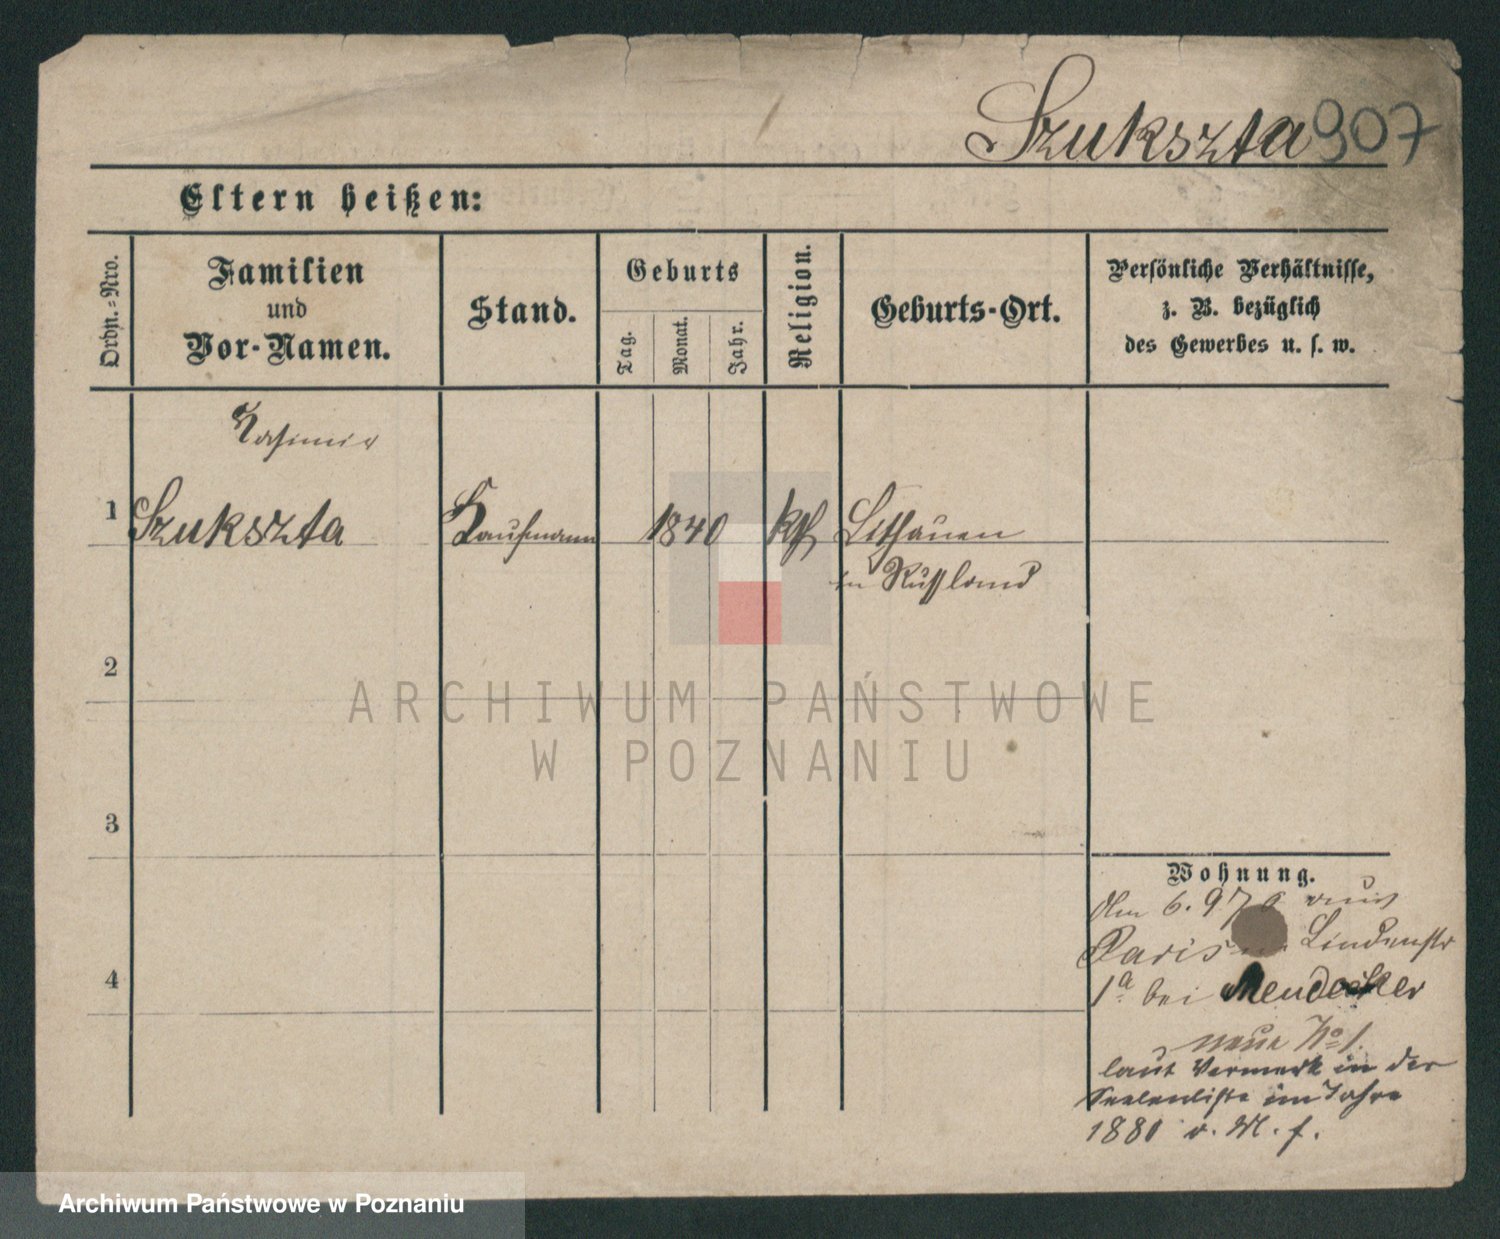 Szukszta 907
Eltern heißen:
Ordn.-Nro.
Familien
und
Vor-Namen.
Stand.
Geburts
Tag.
Monat.
Jahr.
Religion.
Geburts-Ort.
Persönliche Verhältnisse,
z. B. bezüglich
des Gewerbes u. s. w.
Kasimir
1 Szukszta Kaufmann 1840 kth Lithauen
in Russland
2
3
4
Wohnung.
Am 6. 9 76 aus
Paris Lindenstr
1a bei
neue No 1.
laut Vermerk in der
Seelenliste im Jahre
1880 v. M. f.
ARCHIWUM PAŃSTWOWE
W POZNANIU
Archiwum Państwowe w Poznaniu